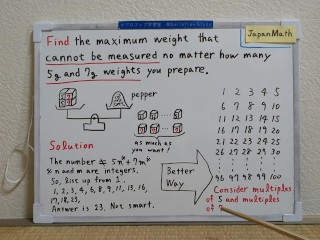 JapanMath
Find the maximum weight that
cannot be measured no matter how many
5g and 7g weights you prepare.
pepper
as much as
you want!
Solution
The number ≒ 5n* + 7m*
* n and m are integers.
So, list up from 1.
1, 2, 3, 4, 6, 8, 9, 11, 13, 16,
17, 18, 23,
Answer is 23. Not smart.
Better
Way
1 2 3 4 5
6 7 8 9 10
11 12 13 14 15
16 17 18 19 20
21 22 23 24 25
26 27 28 29 30
96 97 98 99 100
Consider multiples
of 5 and multiples
of 7